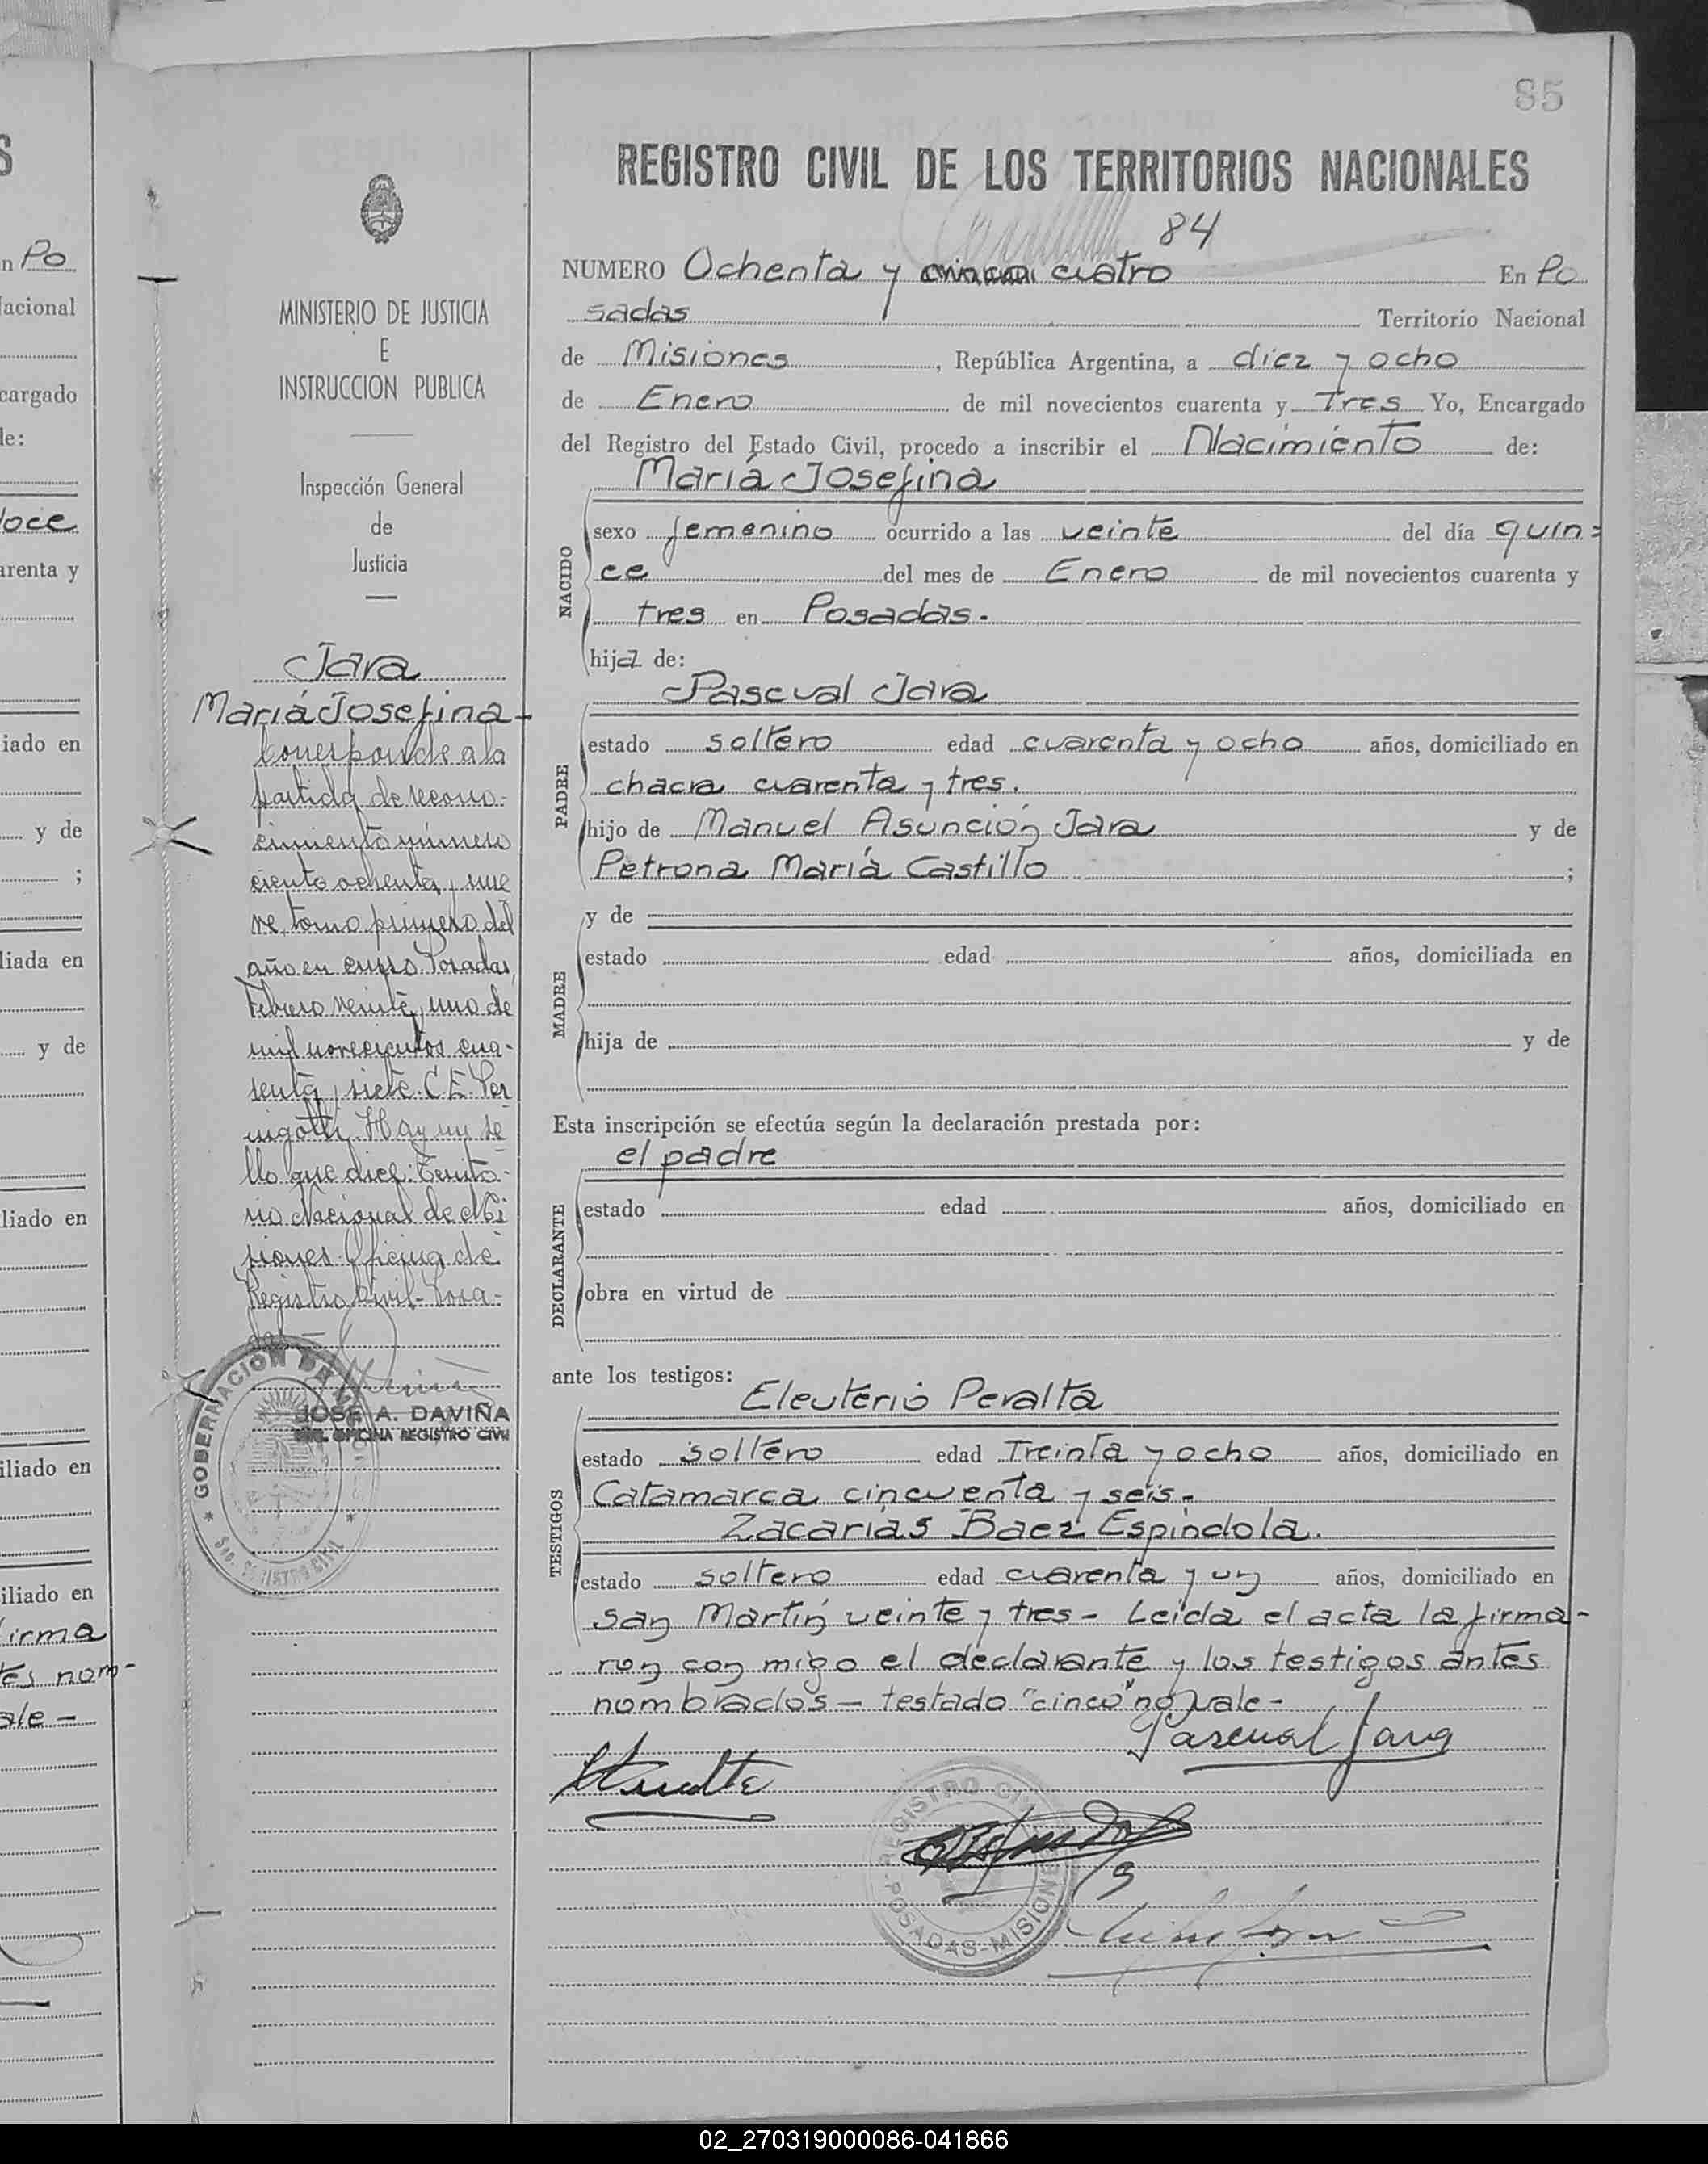 85
REGISTRO CIVIL DE LOS TERRITORIOS NACIONALES
84
NUMERO Ochenta y cuatro En Po
sadas Territorio Nacional
de Misiones, República Argentina, a diez y ocho
de Enero de mil novecientos cuarenta y Tres Yo, Encargado
del Registro del Estado Civil, procedo a inscribir el Nacimiento de:
María Josefina
NACIDO
sexo femenino ocurrido a las veinte del día quin=
ce del mes de Enero de mil novecientos cuarenta y
tres en Posadas.
hija de:
Pascual Jara
PADRE
estado soltero edad cuarenta y ocho años, domiciliado en
chacra cuarenta y tres.
hijo de Manuel Asunción Jara y de
Petrona María Castillo ;
MADRE
y de
estado edad años, domiciliada en
hija de y de
Esta inscripción se efectúa según la declaración prestada por:
el padre
DECLARANTE
estado edad años, domiciliado en
obra en virtud de
ante los testigos:
Eleuterio Peralta
TESTIGOS
estado soltero edad Treinta y ocho años, domiciliado en
Catamarca cincuenta y seis.
Zacarías Baez Espíndola.
estado soltero edad cuarenta y un años, domiciliado en
San Martín veinte y tres - Leida el acta la firma-
ron con migo el declarante y los testigos antes
nombrados - testado "cinco" no vale -
Pascual Jara
REGISTRO CIVIL
POSADAS-MISIONES
MINISTERIO DE JUSTICIA
E
INSTRUCCION PUBLICA
Inspección General
de
Justicia
Jara
María Josefina-
Corresponde a la
partida de recono-
cimiento número
ciento ochenta y nue
ve tomo primero del
año en curso Posadas,
Febrero veinte y uno de
mil novecientos cua-
renta y siete. C. E.
Hay un se
llo que dice: Territo-
rio Nacional de Mi
siones. Oficina de
Registro Civil- Posa-
das -
JOSÉ A. DAVIÑA
OFICINA REGISTRO CIVIL
GOBERNACION DE MISIONES
REGISTRO CIVIL
n Po
acional
cargado
de:
doce
arenta y
iado en
y de
;
liada en
y de
liado en
iliado en
iliado en
firma
tes nom-
ale -
02_270319000086-041866